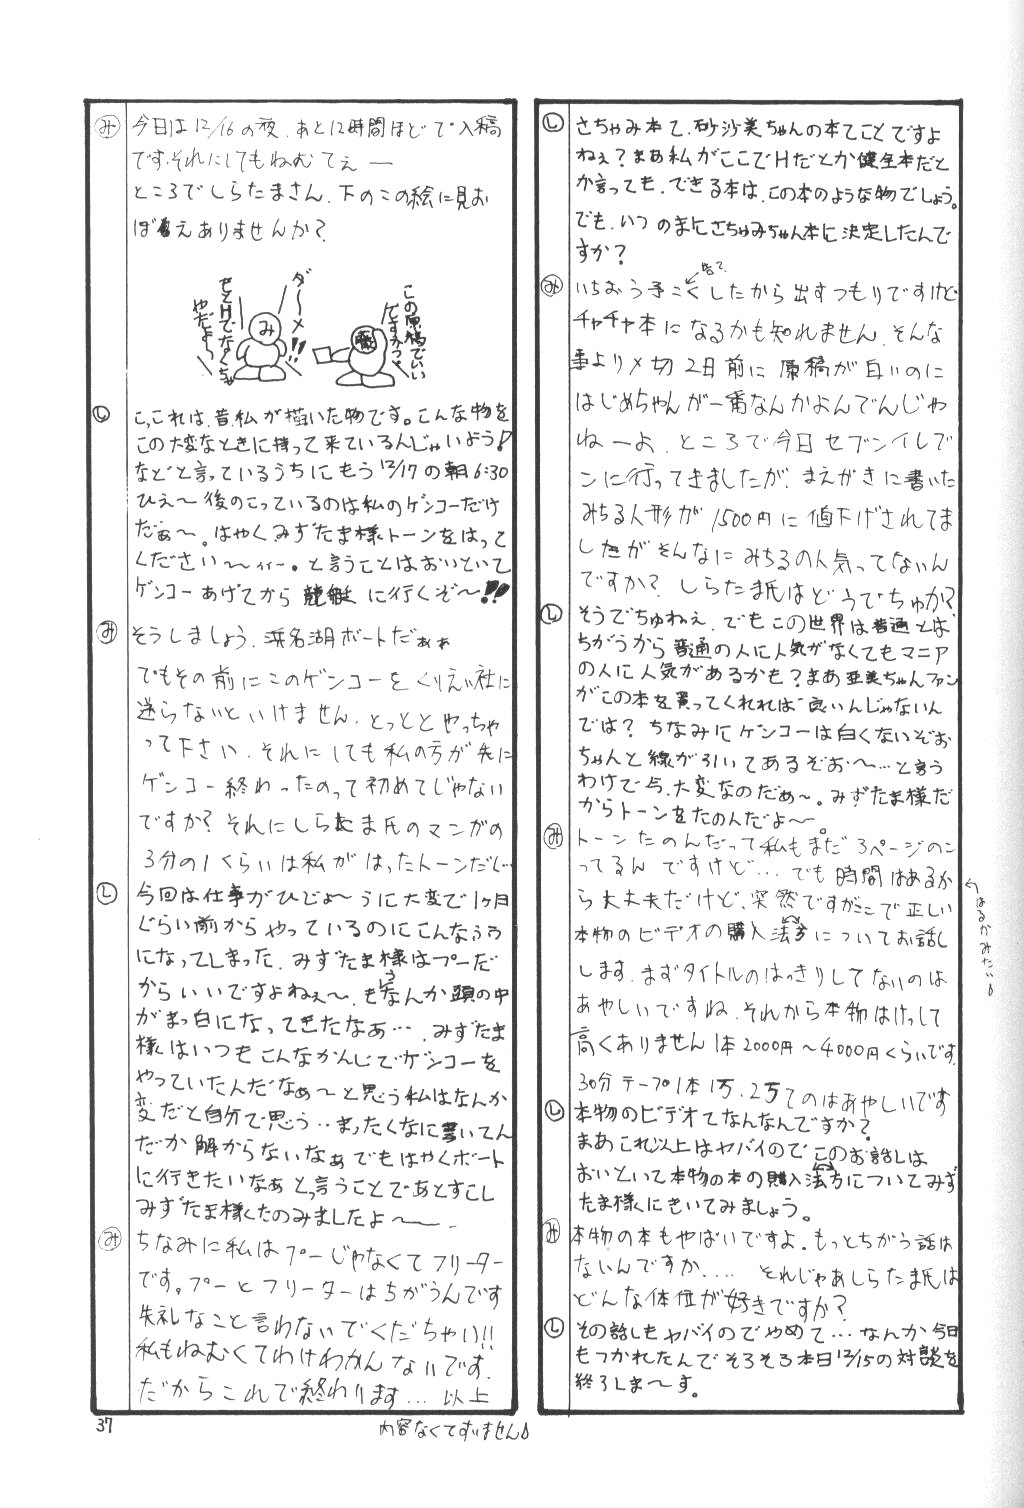 し さちゃみ本て、砂沙美ちゃんの本てことですよ
ねぇ?まあ私がここでHだとか健全本だと
か言っても、できる本は、この本のような物でしょう。
でも、いつのまにさちゅみちゃん本に決定したんで
すか?
み いちおう予こくしたから出すつもりですけど
チャチャ本になるかも知れません、そんな
事より〆切2日前に原稿が白いのに
はじめちゃんが一番なんかよんでんじゃ
ねーよ、ところで今日セブンイレブ
ンに行ってきましたが、まえがきに書いた
みちる人形が1500円に値下げされてま
したがそんなにみちるの人気ってないん
ですか?しらたま氏はどうでちゅか?
し そうでちゅねぇ、でもこの世界は普通とは、
ちがうから普通の人に人気がなくてもマニア
の人に人気があるかも?まあ亜美ちゃんファン
がこの本を買ってくれれば良いんじゃないん
では?ちなみにゲンコーは白くないぞお
ちゃんと線が引いてあるぞお〜…と言う
わけで与、大変なのだぁ〜。みずたま様だ
からトーンをたのんだよ〜。
み トーンたのんだって私もまだ3ページのこ
ってるんですけど…でも時間はあるか
ら大丈夫だけど、突然ですがここで正しい
本物のビデオの購入法方についてお話し
します。まずタイトルのはっきりしてないのは
あやしいですね、それから本物はけっして
高くありません1本2000円〜4000円くらいです
30分テープ1本1万、2万てのはあやしいです
←はるかみたい♪
し 本物のビデオてなんなんですか?
まあこれ以上はヤバイのでこのお話しは
おいといて本物の本の購入法方についてみず
たま様にきいてみましょう。
み 本物の本もやばいですよ、もっとちがう話は
ないんですか…. それじゃあしらたま氏は
どんな体位が好きですか?
し その話しもヤバイのでやめて…なんか今日
もつかれたんでそろそろ本日12/15の対談を
終了しま〜す。
み 今日は12/16の夜、あと12時間ほどで入稿
です、それにしてもねむてぇー
ところでしらたまさん、下のこの絵に見お
ぼえありませんか?
この原稿でいい
ですかっ
ダ〜メ!!
み
もっとHでなくちゃ
やだよっ
し こ、これは、昔、私が描いた物です。こんな物を
この大変なときに持って来ているんじゃいよう!
などと言っているうちにもう12/17の朝6:30
ひえ〜後のこっているのは私のゲンコーだけ
だぁ〜。はやくみずたま様トーンをはって
ください〜。と言うことはおいといて
ゲンコーあげてから競艇に行くぞ〜!!
み そうしましょう、浜名湖ボートだぁぁ
でもその前にこのゲンコーをくりえい社に
送らないといけません、とっととやっちゃ
って下さい、それにしても私の方が先に
ゲンコー終わったのって初めてじゃない
ですか?それにしらたま氏のマンガの
3分の1くらいは私がはったトーンだし…
し 今回は仕事がひじょ〜うに大変で1ヶ月
ぐらい前からやっているのにこんなふう
になってしまった、みずたま様はプーだ
からいいですよねぇ〜、もうなんか頭の中
がまっ白になってきたなあ…、みずたま
様はいつもこんなかんじでゲンコーを
やっていたんだなぁ〜と思う私はなんか
変だと自分で思う‥まったくなに書いてん
だか解からないなぁでもはやくボート
に行きたいなぁと言うことであとすこし
みずたま様くたのみましたよ〜
み ちなみに私はプーじゃなくてフリーター
です。プーとフリーターはちがうんです
失礼なこと言わないでくだちゃい!!
私もねむくてわけわかんないです。
だからこれで終わります…以上
37
内容なくてすいません♪